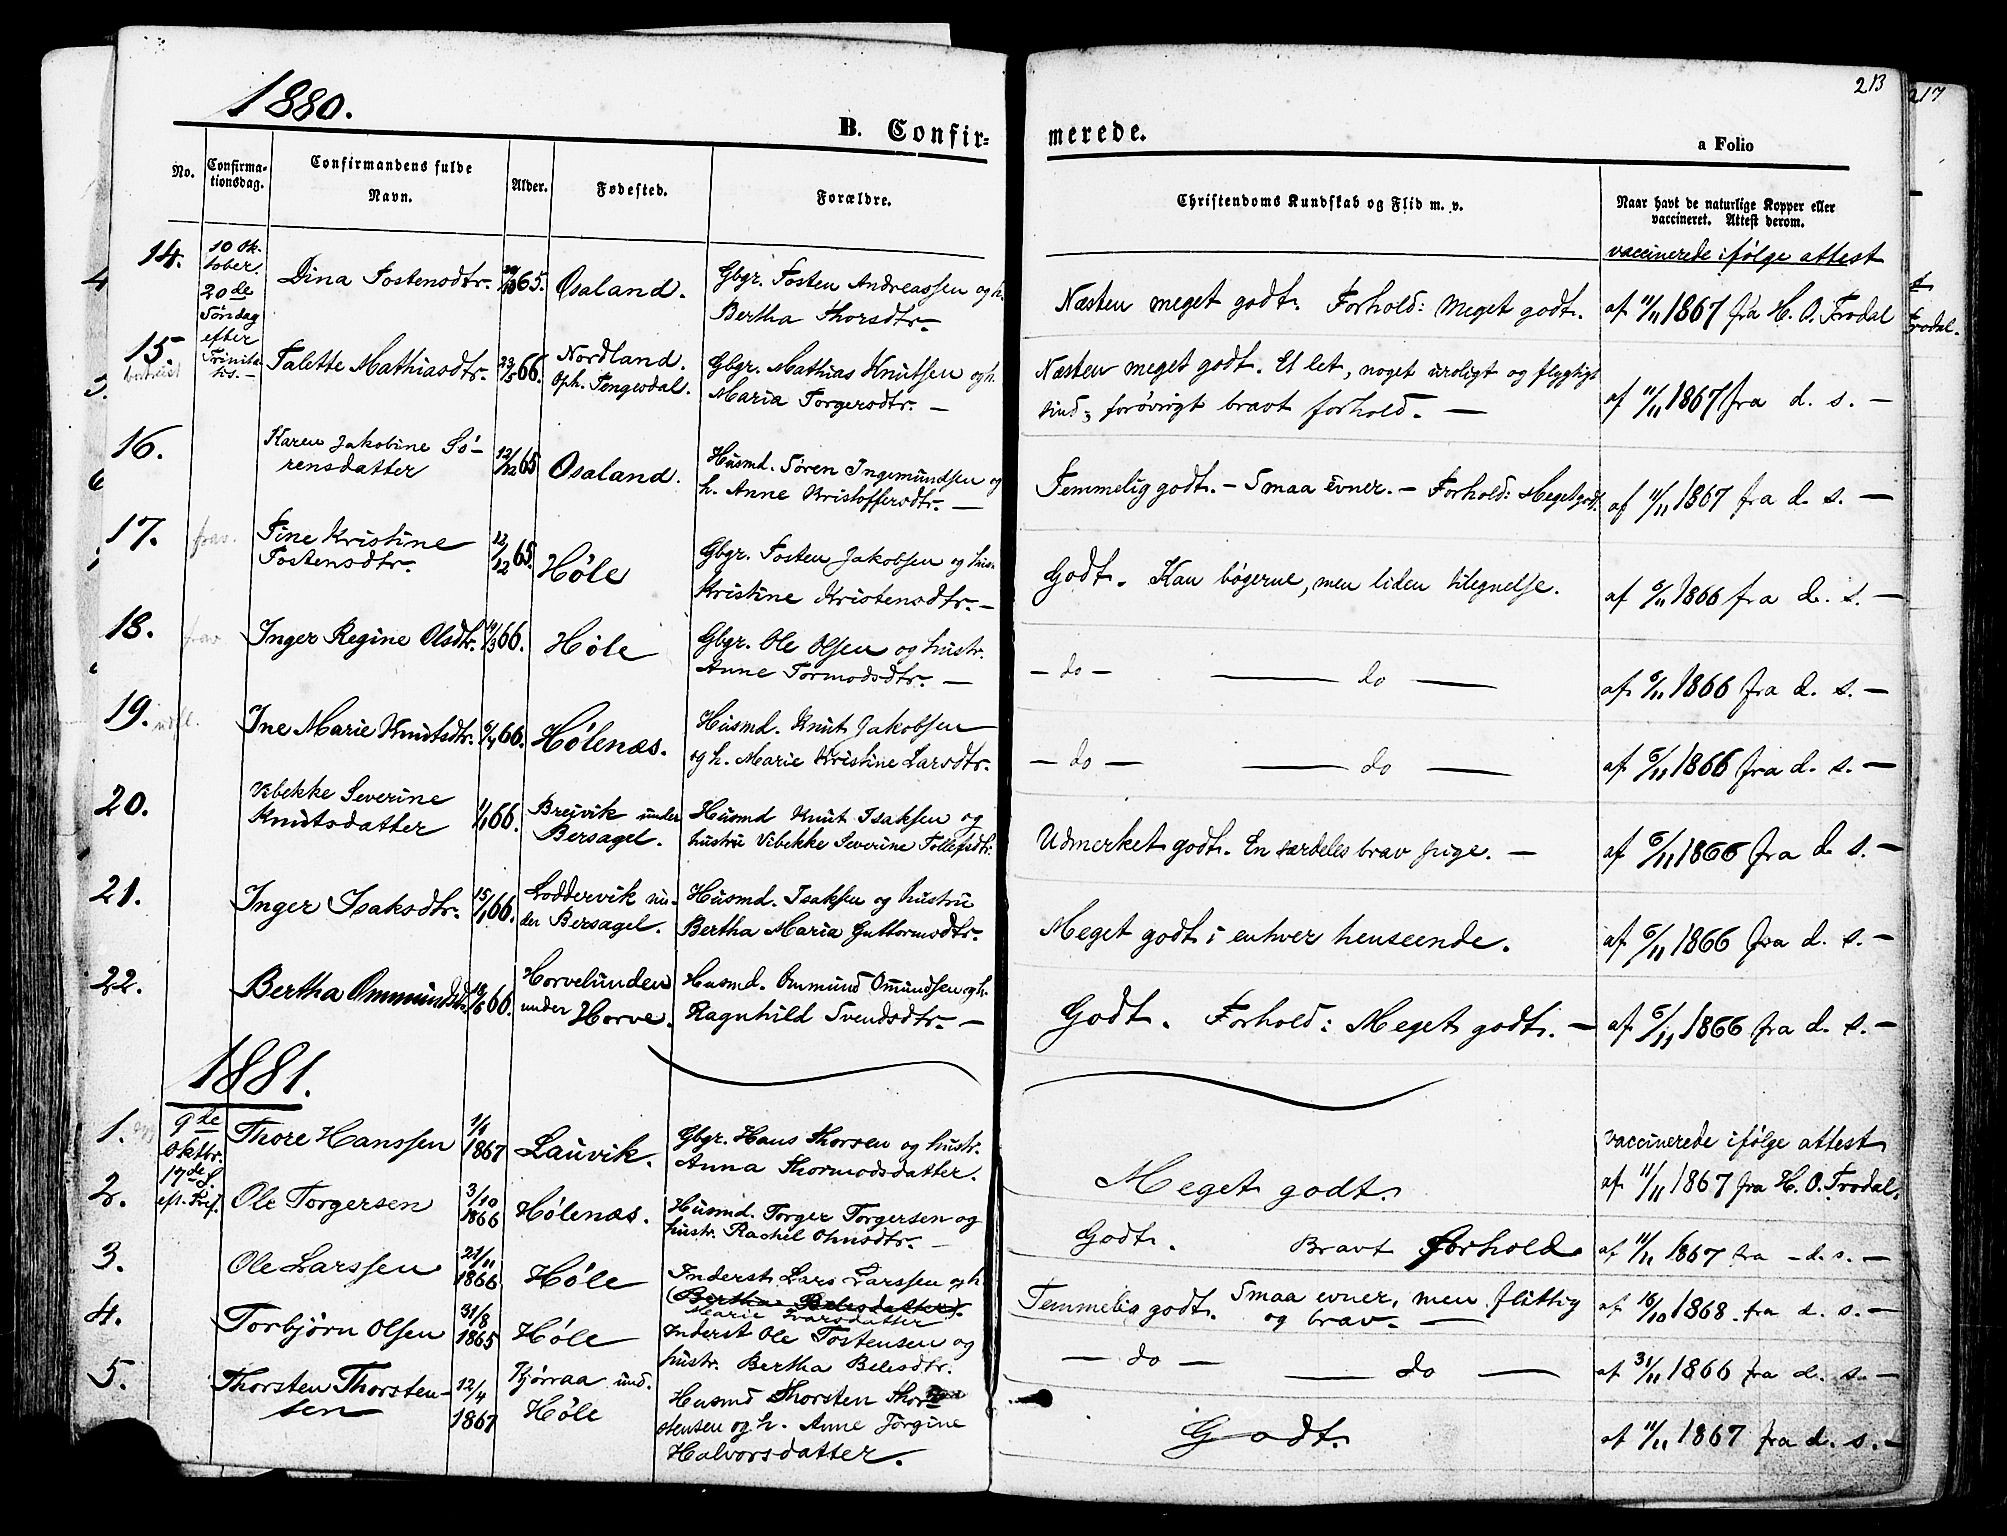 1880.
213
217
B. Confir-
merede.
a Folio
No.
Confirma-
tionsdag.
Confirmandens fulde
Navn.
Alder.
Fødested.
Forældre.
Christendoms Kundskab og Flid m. v.
Naar havt de naturlige Kopper eller
vaccineret. Attest derom.
vaccinerede ifølge attest
14.
10 Ok-
tober.
20de
Søndag
efter
Trinita-
tis.—
Dina Tostensdtr.
65.
Osaland.
Gbgr. Tosten Andreassen og h.
Bertha Thorsdtr.—
Næsten meget godt. Forhold: Meget godt.
af 11/11 1867 fra H. O. Frodal
15.
Talette Mathiasdtr.
23/5 66.
Nordland.
Oph. Tengesdal.
Gbgr. Mathias Knutsen og h.
Maria Torgersdtr. —
Næsten meget godt. Et let, noget uroligt og flygtigt
sind; forøvrigt bravt forhold. —
af 11/11 1867 fra d. s. —
16.
Karen Jakobine Sö-
rensdatter
12/12 65
Osaland.
Husmd. Søren Ingemundsen og
h. Anne Kristoffersdtr. —
Temmelig godt. — Smaa evner. — Forhold: Meget godt.
af 11/11 1867 fra d. s. —
17.
frav.
Tine Kristine
Tostensdtr.
12/12 65.
Høle
Gbgr. Tosten Jakobsen og hus.
Kristine Kristensdtr. —
Godt. Kan bøgerne, men liden tilegnelse.
af 6/11 1866 fra d. s. —
18.
frav
Inger Regine Olsdtr.
66.
Høle
Gbgr. Ole Olsen og hustr.
Anne Tormodsdtr. —
— do — — do —
af 6/11 1866 fra d. s. —
19.
Ine Marie Knutsdtr.
66.
Hølenæs.
Husmd. Knut Jakobsen
og h. Marie Kristine Larsdtr.
— do — — do —
af 6/11 1866 fra d. s. —
20.
Vibekke Severine
Knutsdatter
66.
Breivik under
Bersagel.
Husmd Knut Isaksen og
hustru Vibekke Severine Tollefsdtr.
Udmerket godt. En særdeles brav pige. —
af 6/11 1866 fra d. s. —
21.
Inger Isaksdtr.
15/1 66.
Loddervik un-
der Bersagel.
Husmd. Isaksen og hustru
Bertha Maria Guttormsdtr.
Meget godt i enhver henseende.
af 6/11 1866 fra d. s. —
22.
Bertha Ommundsdtr.
66.
Horvelunden
under Horve.
Husmd. Ommund Omundsen og h.
Ragnhild Svendsdtr. —
Godt. Forhold: Meget godt. —
af 6/11 1866 fra d. s. —
1881.
vaccinerede ifølge attest
1.
9de
Oktbr.
17de S.
eft. Tref.
Thore Hanssen
1867
Lauvik.
Gbgr. Hans Thorsen og hustr.
Anna Thormodsdatter.
Meget godt.
af 11/11 1867 fra H. O. Frodal.
2.
Ole Torgersen
3/10
1866
Hølenæs.
Husmd. Torger Torgersen og
hustr. Rachel Ohnsdtr. —
Godt. Bravt forhold
af 11/11 1867 fra — d. s. —
3.
Ole Larssen
21/11
1866
Høle
Inderst Lars Larssen og h.
(Bertha Belesdatter).
Marie Ivarsdatter
Temmelig godt. Smaa evner, men flittig
og brav. —
af 16/10 1868 fra d. s. —
4.
Torbjørn Olsen
31/8
1865
Høle
Inderst Ole Tostensen og
hustr. Bertha Belesdtr.
— do — — do —
af 31/11 1866 fra d. s. —
5.
Thorsten Thorsten-
sen
12/4
1867
Kjørraa und.
Høle
Husmd Thorsten Thor
stensen og h. Anne Jørgine
Halvorsdatter.
Godt.
af 11/11 1867 fra d. s. —